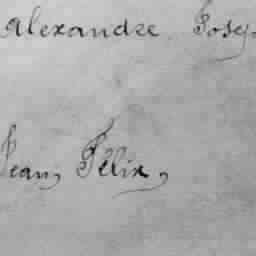 Alexandre Josep
Jean, Félix,